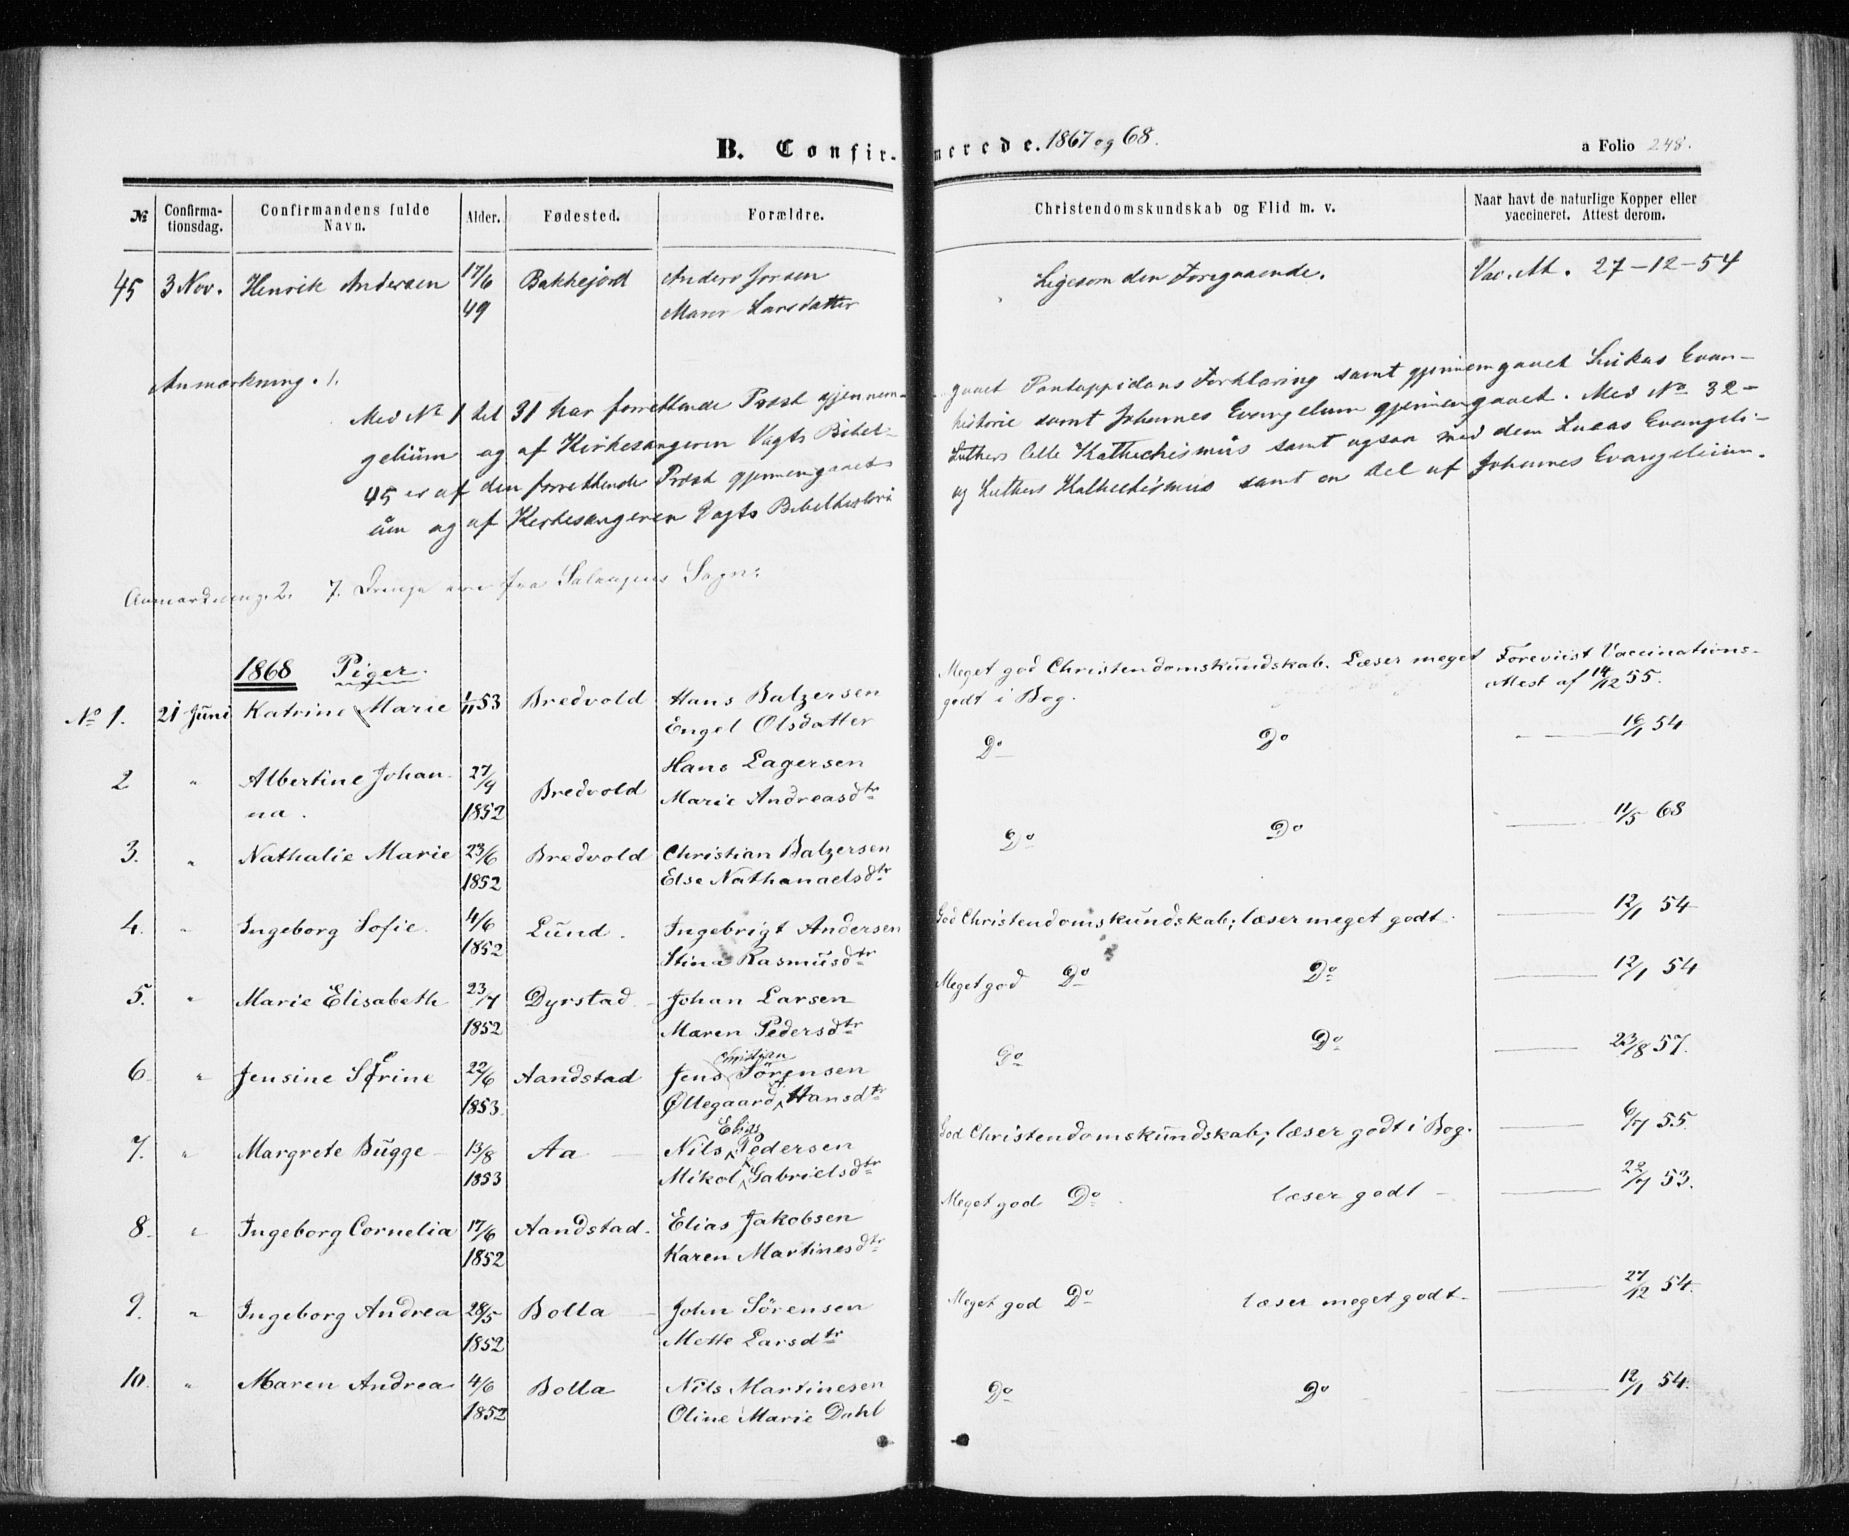 B. Confir-
merede. 1867 og 68.
a Folio 248.
№
Confirma-
tionsdag.
Confirmandens fulde
Navn.
Alder.
Fødested.
Forældre.
Christendomskundskab og Flid m. v.
Naar havt de naturlige Kopper eller
vaccineret. Attest derom.
45 3 Nov. Henrik Andersen 17/6 Bakkejord Anders Jonsen Ligesom den Foregaaende. Vac. At. 27-12-54
49 Maren Larsdatter
Anmærkning. 1.
Med No 1 til 31 har forrettende Præst gjennem- gaaet Pontoppidans Forklaring samt gjennemgaaet Lukas Evan-
gelium og af Kirkesangeren Vogts Bibel- historie samt Johannes Evangelium gjennemgaaet. Med No 32-
45 er af den forrettende Præst gjennemgaaet Luthers lille Kathechismus samt ogsaa med dem Lucas Evangeli-
um og af Kirkesangeren Vogts Bibelhistorie og Luthers Kathechismus samt en del af Johannes Evangelium.
Anmærkning. 2. 7. Drenge ere fra Salangens Sogn.
1868 Piger.
No 1. 21 Juni Katrine Marie 1/11 53 Bredvold Hans Balzersen Meget god Christendomskundskab. Læser meget Foreviist Vaccinations-
Engel Olsdatter godt i Bog. Attest af 14/12 55.
2 " Albertine Johan- 27/9 Bredvold Hans Lagersen Do Do 16/1 54
na. 1852 Marie Andreasdtr
3. " Nathalie Marie 23/6 Bredvold Christian Balzersen Do Do 11/5 68
1852 Else Nathanaelsdtr
4. " Ingeborg Sofie. 4/6 Lund. Ingebrigt Andersen God Christendomskundskab; læser meget godt. 12/1 54
1852 Stina Rasmusdtr
5. " Marie Elisabeth 23/7 Dyrstad Johan Larsen Meget god Do Do 12/1 54
1852 Maren Pedersdtr
Christian
6. " Jensine Serine 22/6 Aandstad Jens Sörensen Do Do 23/8 57.
1853. Øllegaard Hansdtr
Elias
7. " Margrete Bugge 13/8 Aa Nils Pedersen God Christendomskundskab; læser godt i Bog. 6/7 55.
1853 Mikol Gabrielsdtr
8. " Ingeborg Cornelia 17/6 Aandstad. Elias Jakobsen Meget god Do læser godt 22/7 53.
1852 Karen Martinesdtr
9. " Ingeborg Andrea 28/5 Bolla John Sörensen Meget god Do læser meget godt. 27/12 54.
1852 Mette Larsdtr
10. " Maren Andrea 4/6 Bolla Nils Martinesen Do Do 12/1 54.
1852 Oline Marie Dahl